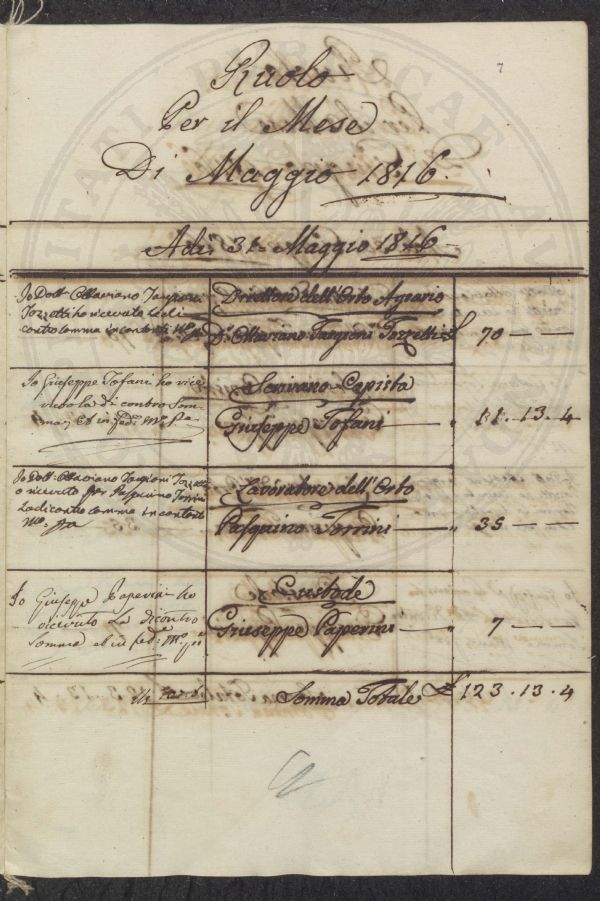 7
Ruolo
Per il Mese
Di Maggio 1816.
Adì 31. Maggio 1816.
Io Dott. Ottaviano Targioni
Tozzetti ho ricevuto la di
contro somma in contanti Mo. pa
Direttore dell'Orto Agrario
Dr. Ottaviano Targioni Tozzetti £ 70 — —
Io Giuseppe Tofani ho rice
vuto la di contro som
ma, et in fede Mo. Pa.
Scrivano Copista
Giuseppe Tofani — „ 11. 13. 4
Io Dott. Ottaviano Targioni Tozzetti
o ricevuto per Pasquino Torrini
la di contro somma in contanti
Mo. pa
Lavoratore dell'Orto
Pasquino Torrini — „ 35 — —
Io Giuseppe Paperini ho
ricevuto La dicontro
Somma et in fede Mo. pa
Custode
Giuseppe Paperini — „ 7 — —
Somma Totale £ 123. 13. 4